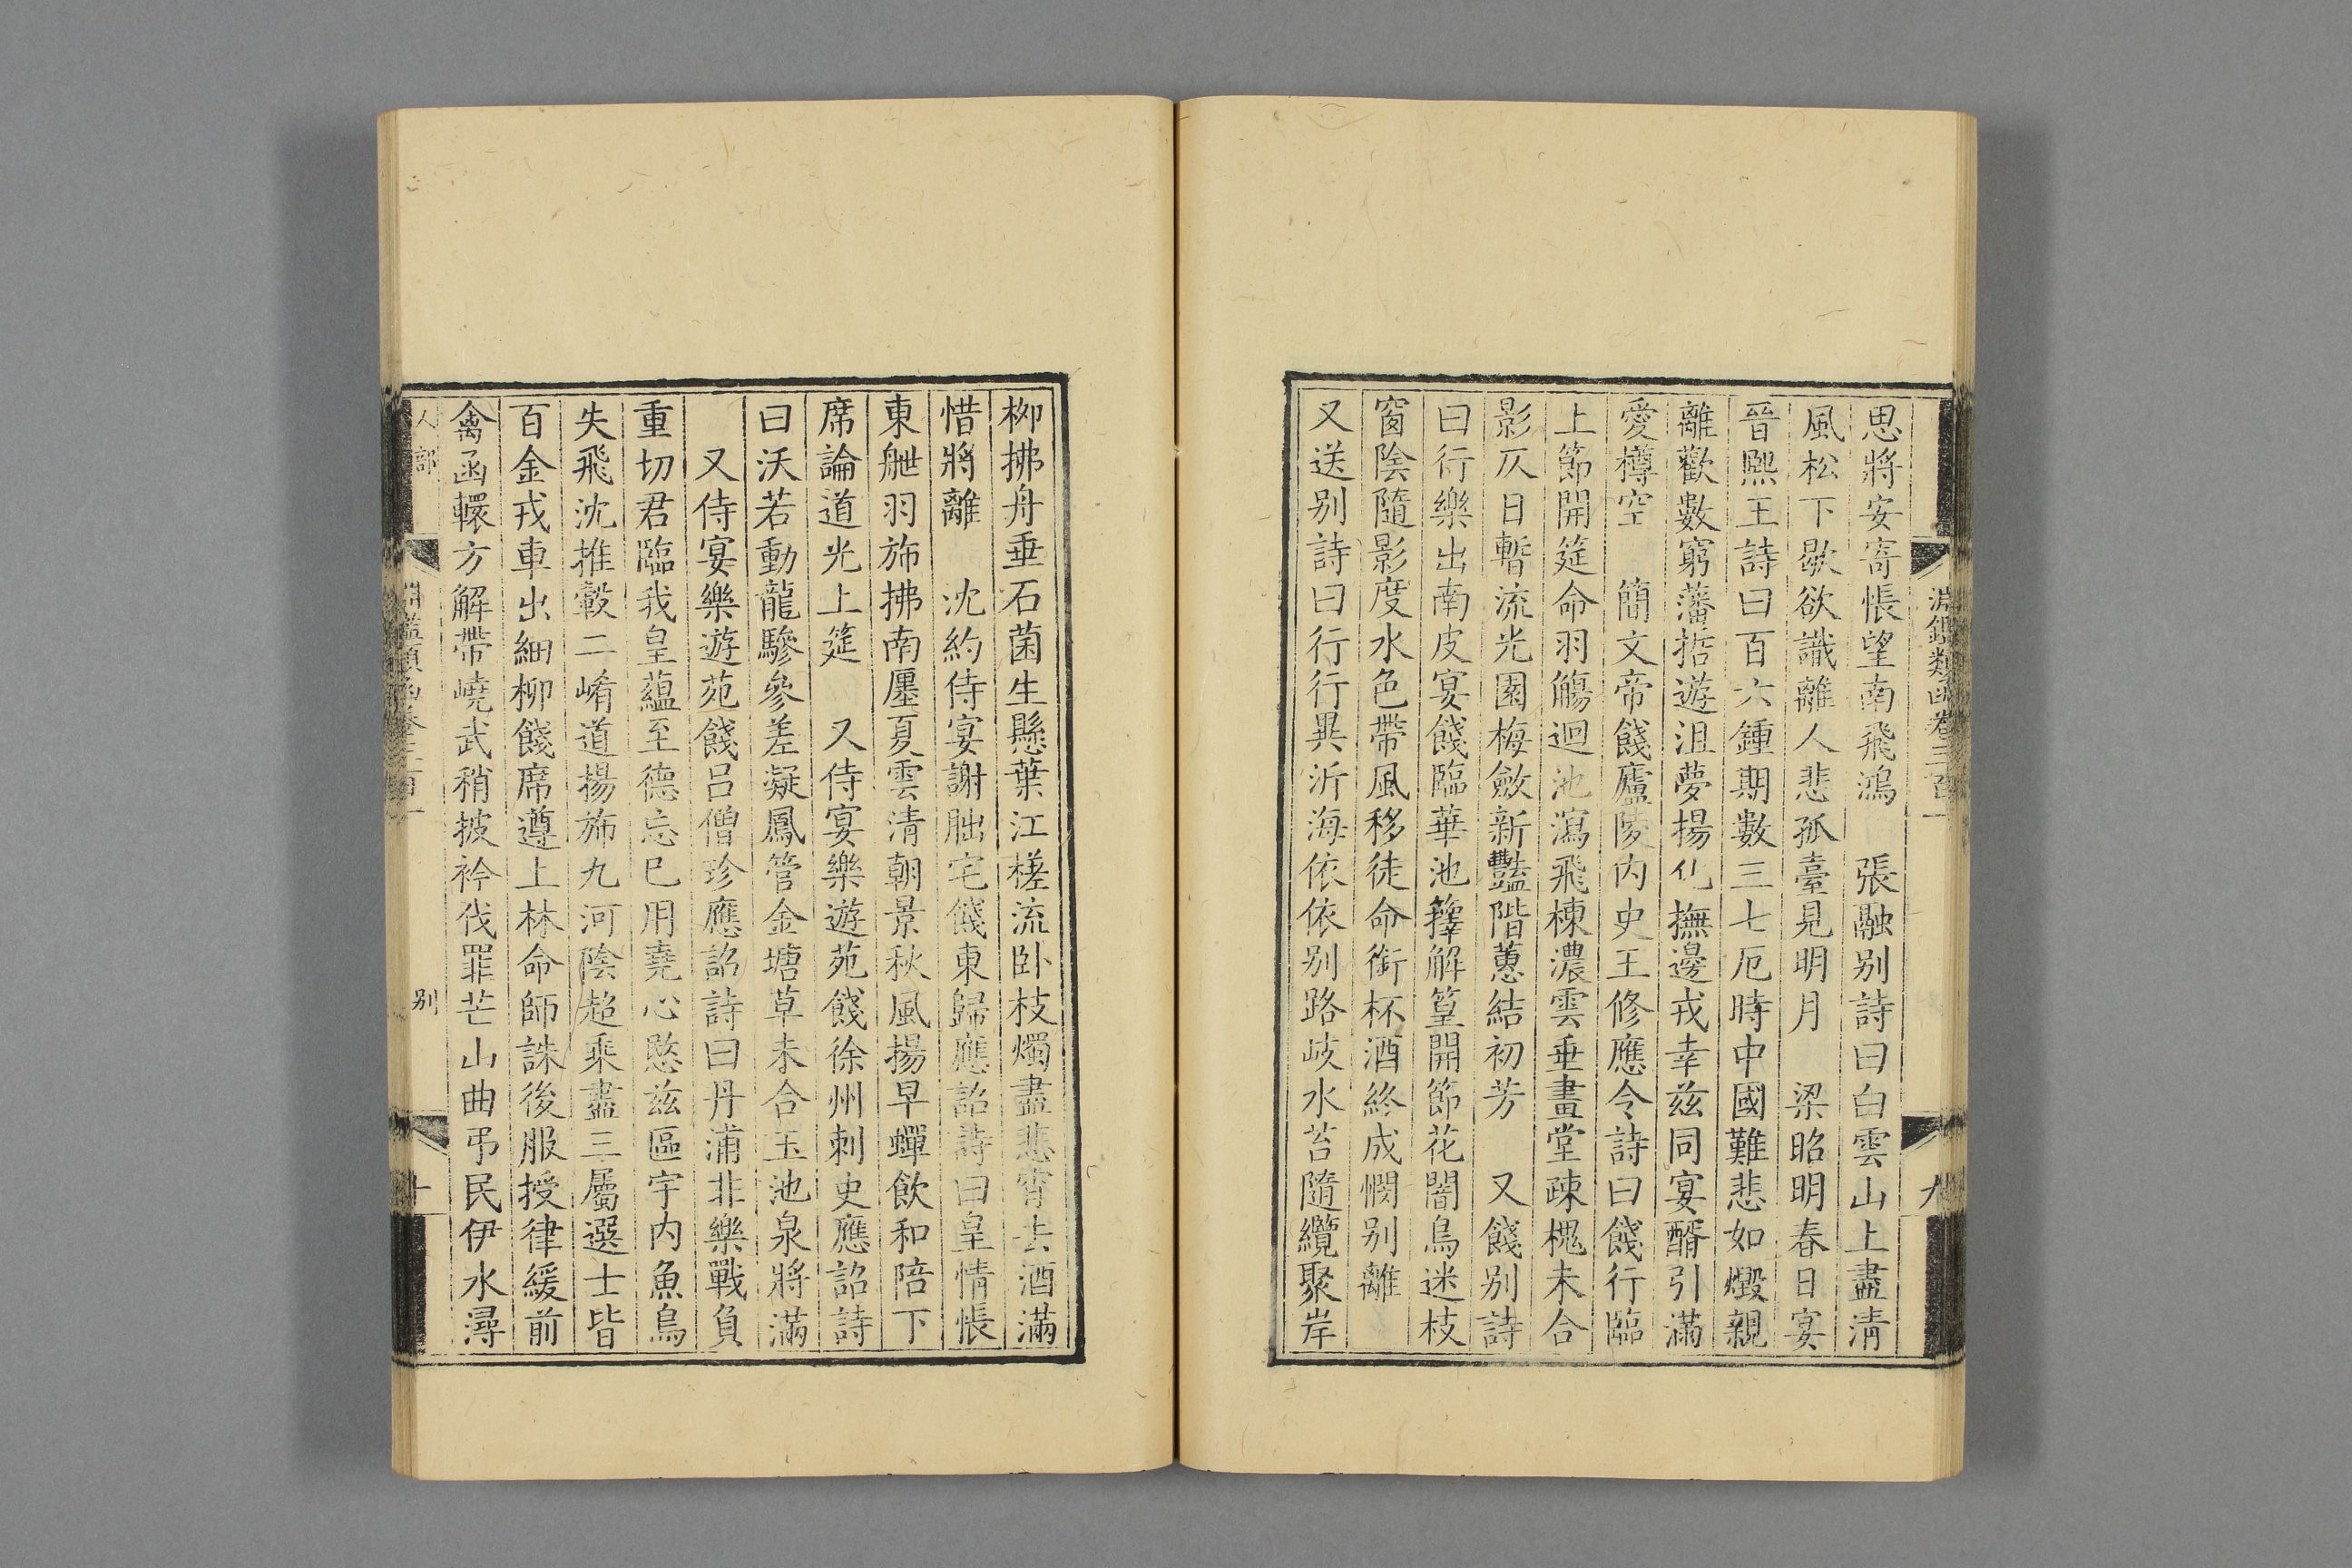 淵鑑類函卷三百一
九
思將安寄悵望南飛鴻 張融别詩曰白雲山上盡淸
風松下歇欲識離人悲孤臺見明月 梁昭明春日宴
晉熙王詩曰百六鍾期數三七厄時中國難悲如燬親
離歡數窮藩哲遊沮夢揚化撫邊戎幸兹同宴醑引滿
愛樽空 簡文帝餞廬陵内史王修應令詩曰餞行臨
上節開筵命羽觴迴池瀉飛棟濃雲垂畫堂疎槐未合
影仄日暫流光園梅斂新豔階蕙結初芳 又餞别詩
曰行樂出南皮宴餞臨華池籜解篁開節花闇鳥迷枝
窗陰隨影度水色帶風移徒命銜杯酒終成憫别離
又送别詩曰行行異沂海依依别路岐水苔隨纜聚岸
栁拂舟垂石菌生懸葉江槎流卧枝燭盡悲宵去酒滿
惜將離 沈約侍宴謝朏宅餞東歸應詔詩曰皇情悵
東䑨羽斾拂南㕓夏雲清朝景秋風揚早蟬飲和陪下
席論道光上筵 又侍宴樂遊苑餞徐州刺史應詔詩
曰沃若動龍驂參差凝鳳管金塘草未合玉池泉將滿
又侍宴樂遊苑餞吕僧珍應詔詩曰丹浦非樂戰負
重切君臨我皇藴至德忘巳用堯心愍兹區宇内魚鳥
失飛沈推轂二崤道揚斾九河陰超乘盡三屬選士皆
百金戎車出細柳餞席遵上林命師誅後服授律緩前
禽函轘方解帶嶢武稍披衿伐罪芒山曲弔民伊水潯
人部
淵鑑類函卷三百一
别
十